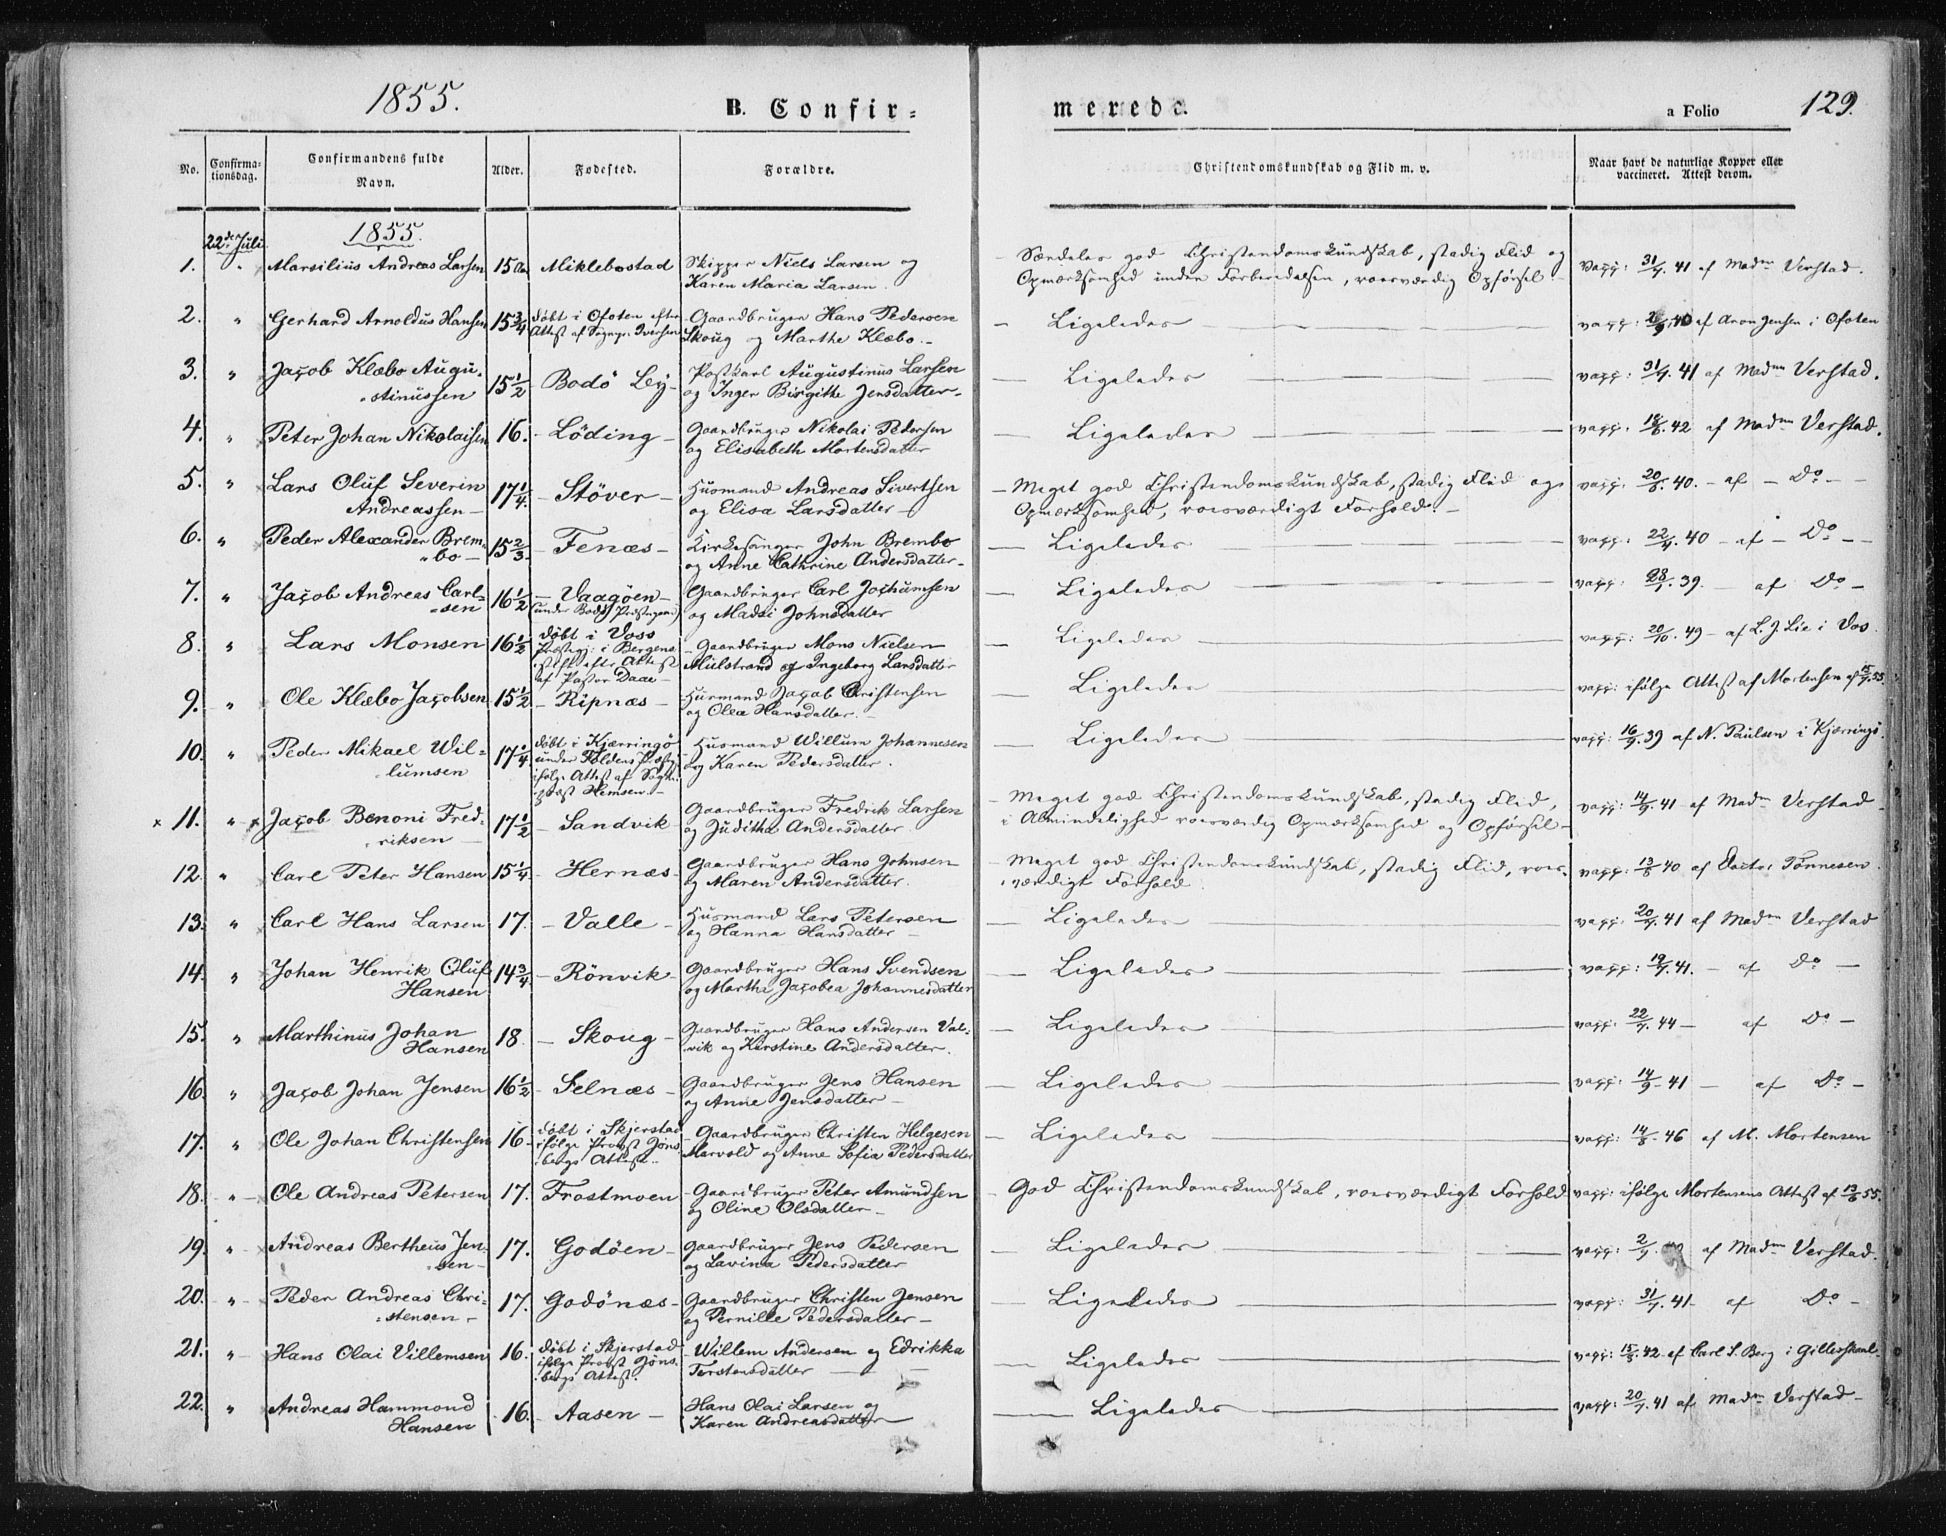 1855. B. Confir= merede. a Folio 129.
No. Confirma=tionsdag. Confirmandens fulde Navn. Alder. Fødested. Forældre. Christendomskundskab og Flid m. v. Naar havt de naturlige Kopper eller vaccineret. Attest derom.
22de Juli 1855.
1. " Marsilius Andreas Larsen 15 Aar Miklebostad Skipper Niels Larsen og Karen Maria Larsen. Særdeles god Christendomskundskab, stadig Flid og Opmærksomhed under Forberedelsen, roesværdig Opførsel - vacc: 31/7. 41 af Madm Verstad.
2. " Gerhard Arnoldus Hansen 15 3/4 døbt i Ofoten efter Attest af Sognepr. Iversen - Gaardbruger Hans Pedersen Skoug og Marthe Klæbo. - - Ligeledes vacc: 40 af Aron Jensen i Ofoten
3. " Jacob Klæbo Augu=stinussen 15 1/2 - Bodø Bÿ - Postkarl Augustinus Larsen og Inger Birgithe Jensdatter - - Ligeledes vacc: 31/7. 41 af Madm Verstad.
4. " Peter Johan Nikolaisen 16. - Löding - Gaardbruger Nikolai Pedersen og Elisabeth Mortensdatter - Ligeledes vacc: 18/8. 42 af Madm Verstad.
5. " Lars Oluf Severin Andreassen - 17 1/4. - Stöver - Husmand Andreas Sivertsen og Elisa Larsdatter - - Meget god Christendomskundskab, stadig Flid og Opmærksomhed, roesværdigt Forhold. - vacc: 20/8. 40. - af - Do -
6. " Peder Alexander Brem=bo - 15 2/3. - Fenæs - Kirkesanger John Brembo og Anne Cathrine Andersdatter - - Ligeledes vacc: 22/7. 40 - af - Do -
7. " Jacob Andreas Carl=sen 16 1/2 - Vaagöen - (under Bodø Præstegjeld) Gaardbruger Carl Jochumsen og Madsi Johnsdatter - Ligeledes vacc: 28/7. 39. - af Do -
8. " Lars Monsen 16 1/2 døbt i Voss Præstegj: i Bergens Stift efter Attest af Pastor Daae - - Gaardbruger Mons Nielsen Mülstrand og Ingeborg Larsdatter - Ligeledes vacc: 20/10. 49 - af L. J. Lie i Vos.
9. " Ole Klæbo Jacobsen 15 1/2 - Ripnæs - Husmand Jacob Christensen og Olea Hansdatter. - - Ligeledes vacc: ifølge Attest af Mortensen af 15/7. 55.
10. " Peder Mikael Wil=lumsen 17 1/4. døbt i Kjærringö under Foldens Præstg. ifølge Attest af Sogne=præst Hemsen. - - Husmand Willum Johannesen og Karen Pedersdatter. - Ligeledes vacc: 16/9. 39 af N. Paulsen i Kjærringö.
x 11. " x Jacob Benoni Fred=riksen - 17 1/2 - Sandvik - Gaardbruger Fredrik Larsen og Juditha Andersdatter - Meget god Christendomskundskab, stadig Flid, i Almindelighed roesværdig Opmærksomhed og Opførsel - vacc: 14/9. 41 af Madm Verstad
12. " Carl Peter Hansen 15 1/4. - Hernæs - Gaardbruger Hans Johnsen og Maren Andersdatter. - Meget god Christendomskundskab, stadig Flid, roes=værdigt Forhold. vacc: 13/8 40 af Doctor Tønnesen.
13. " Carl Hans Larsen 17. - Valle - Husmand Lars Petersen og Hanna Hansdatter - - Ligeledes vacc: 20/7. 41 af Madm Verstad
14. " Johan Henrik Oluf Hansen 14 3/4 - Rönvik - Gaardbruger Hans Svendsen og Martha Jacobea Johannesdatter - Ligeledes vacc: 19/7. 41. - af Do -
15. " Marthinus Johan Hansen 18. - Skoug - Gaardbruger Hans Andersen Val=vik og Kirstine Andersdatter. - Ligeledes vacc: 22/7. 44 - af Do -
16. " Jacob Johan Jensen 16 1/2 - Selnæs - Gaardbruger Jens Hansen og Anne Jensdatter - - Ligeledes vacc: 14/9. 41 - af Do -
17. " Ole Johan Christensen 16 - døbt i Skjerstad ifølge Provst Jöns=bergs Attest. - Gaardbruger Christen Helgesen Marvold og Anne Sofia Pedersdatter - Ligeledes vacc: 14/8. 46 af M. Mortensen
18. " Ole Andreas Petersen 17. Frostmoen - Gaardbruger Peter Amundsen og Oline Olsdatter - - God Christendomskundskab, roesværdigt Forhold vacc: ifølge Mortensens Attest af 13/6 55.
19. " Andreas Bertheus Jen=sen - 17. Godöen - Gaardbruger Jens Pedersen og Lavina Pedersdatter - Ligeledes vacc: 2/7. af Madm Verstad.
20. " Peder Andreas Chri=stensen - 17. Godönæs - Gaardbruger Christen Jensen og Pernille Pedersdatter - - Ligeledes vacc: 31/7. 41 - af Do -
21. " Hans Olai Villemsen 16. døbt i Skjerstad ifølge Provst Jöns=bergs Attest. - Willem Andersen og Edrikka Torstensdatter - - Ligeledes vacc: 15/8. 42 - af Carl S. Berg i Gilleskaal -
22. " Andreas Hammond Hansen 16. - Aasen - Hans Olai Larsen og Karen Andreasdatter - Ligeledes vacc: 20/7. 41 af Madm Verstad -